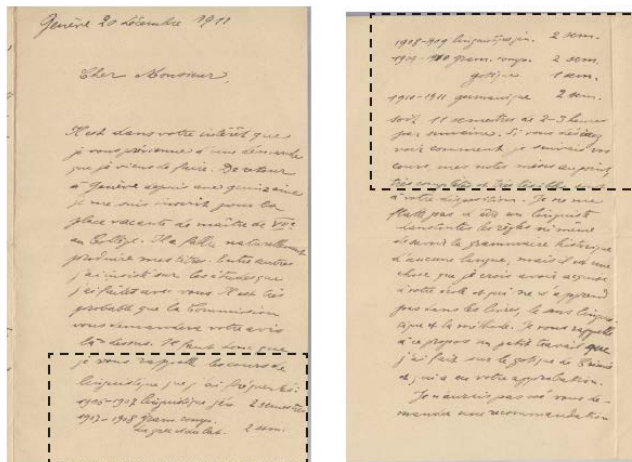 Genève 20 décembre 1911
Cher Monsieur,
Il est dans votre intérêt que
je vous prévienne d'une démarche
que je viens de faire. De retour
à Genève depuis une quinzaine
je me suis inscrit pour la
place vacante de maître de VIIe
au Collège. Il a fallu naturellement
produire mes titres. Entre autres
j'ai insisté sur les études que
j'ai faites avec vous. Il est très
probable que la Commission
vous demandera votre avis
là-dessus. Il faut donc que
je vous rappelle les cours de
linguistique que j'ai fréquentés:
1906-1907 linguistique gén. 2 semestres
1907-1908 gram. comp.
du grec et du lat. 2 sem.
1908-909 linguistique gén. 2 sem.
1909-910 gram. comp. 2 sem.
gotique 1 sem.
1910-1911 germanique 2 sem.
soit 11 semestres de 2-3 heures
par semaine. Si vous désirez
voir comment je suivais vos
cours, mes notes mises au point,
très complètes et très lisibles sont
à votre disposition. Je ne me
flatte pas d'être un linguiste
les règles ni même
de savoir la grammaire historique
d'aucune langue, mais il est une
chose que je crois avoir acquise
à votre école et qui ne s'apprend
pas dans les livres, le sens linguis-
tique et la méthode. Je vous rappelle
à ce propos un petit travail que
j'ai fait sur le gotique
et qui a eu votre approbation.
Je n'aurais pas osé vous de-
mander une recommandation